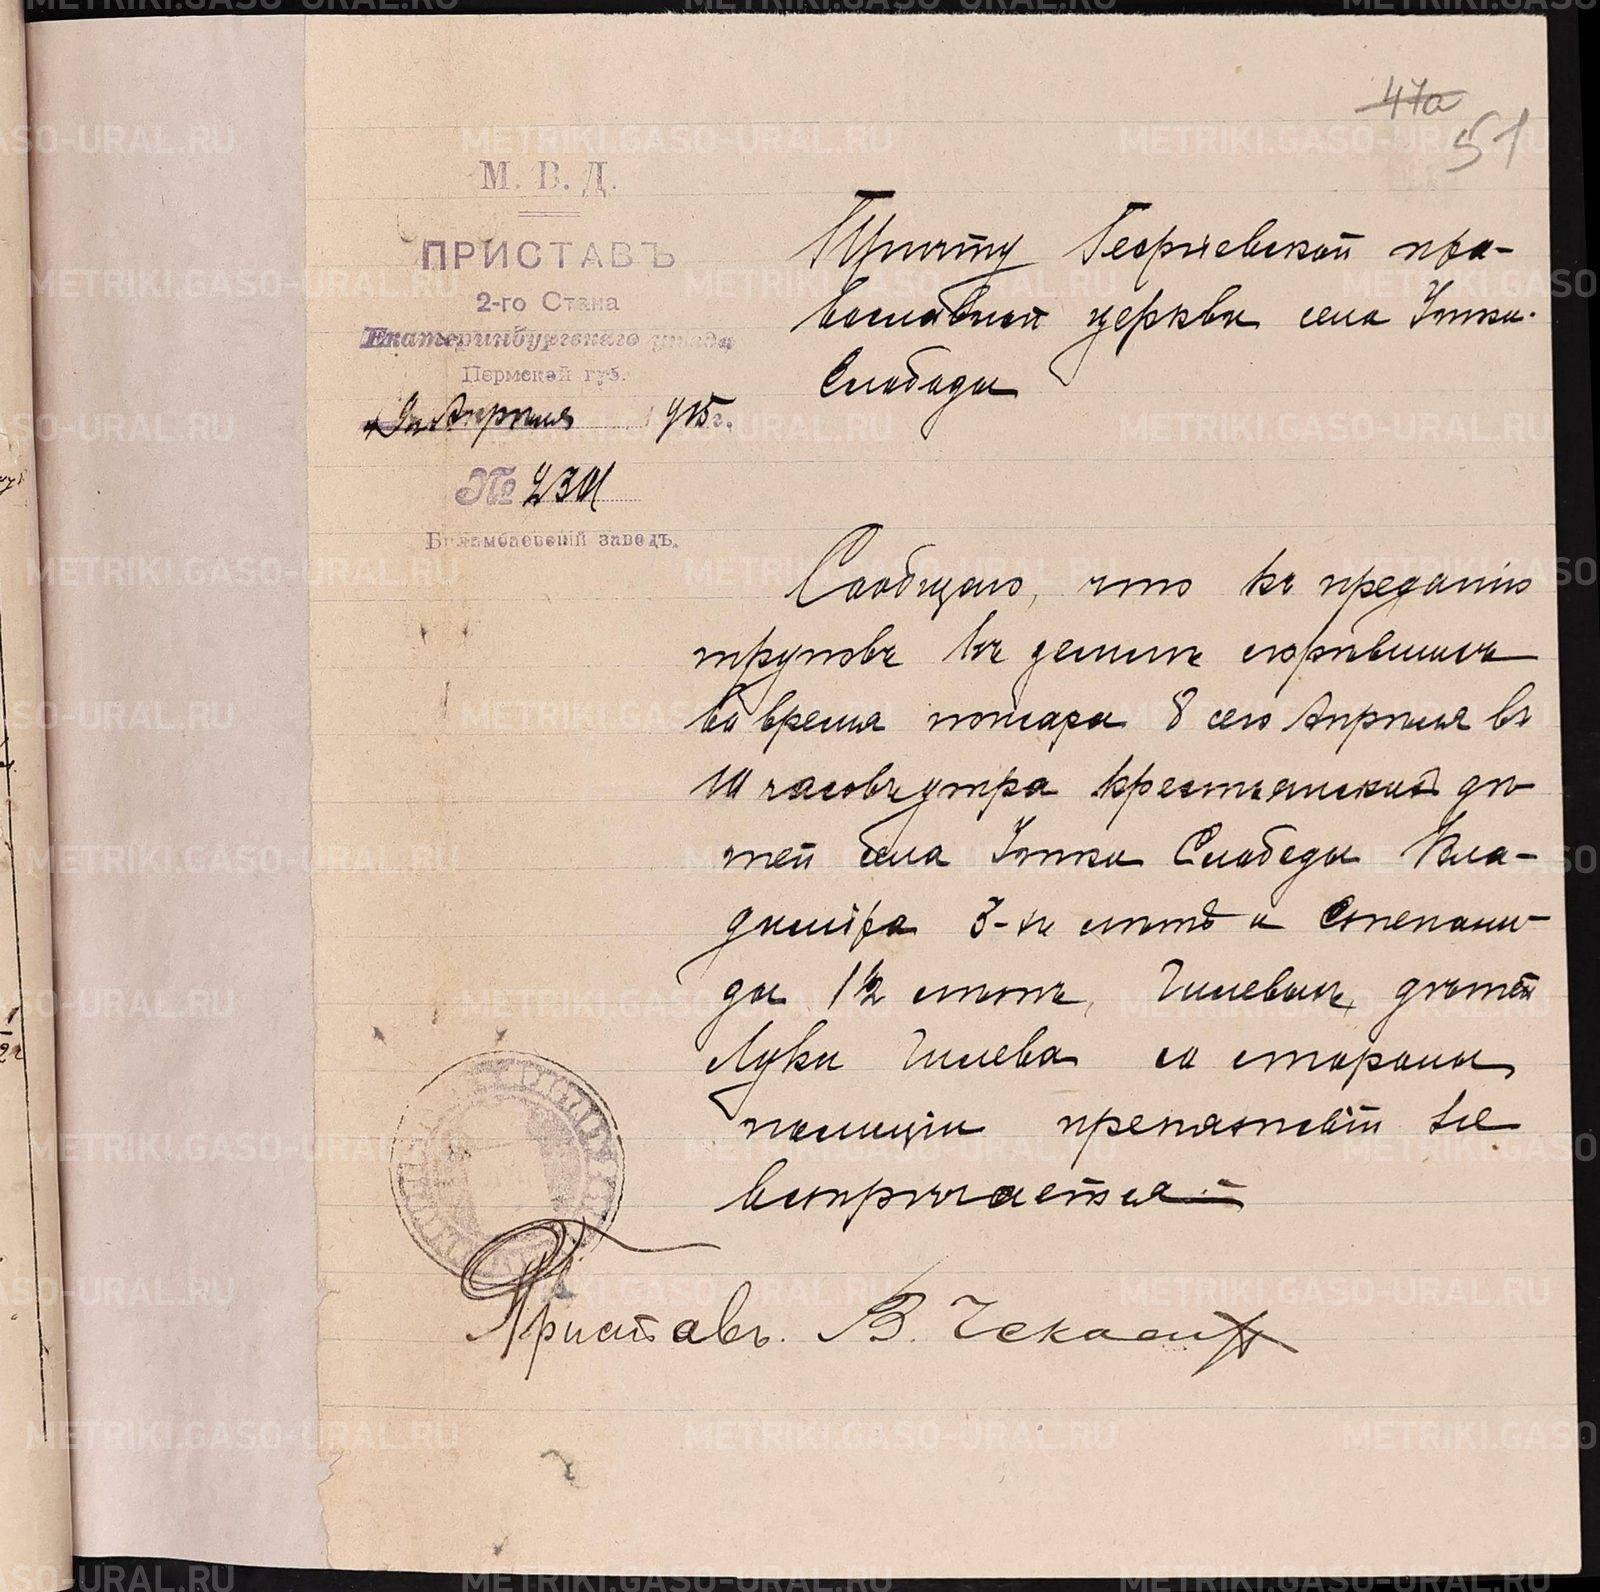 47а
51
М. В. Д.
ПРИСТАВЪ
2-го Стана
Екатеринбургскаго уѣзда
Пермской губ.
Апрѣля 1915 г.
№ 2301
Билимбаевскій заводъ.
Причту Георгіевской пра-
вославной церкви села Утки-
Слободы
Сообщаю, что къ преданію
труповъ къ землѣ сгорѣвшихъ
во время пожара 8 сего Апрѣля въ
10 часовъ утра крестьянскихъ дѣ-
тей села Утки Слободы Вла-
диміра 3-хъ лѣтъ и Степани-
ды 1½ лѣтъ, Гилевыхъ, дѣтей
Луки Гилева со стороны
полиціи препятствій не
встрѣчается.
Приставъ. В.
METRIKI.GASO-URAL.RU